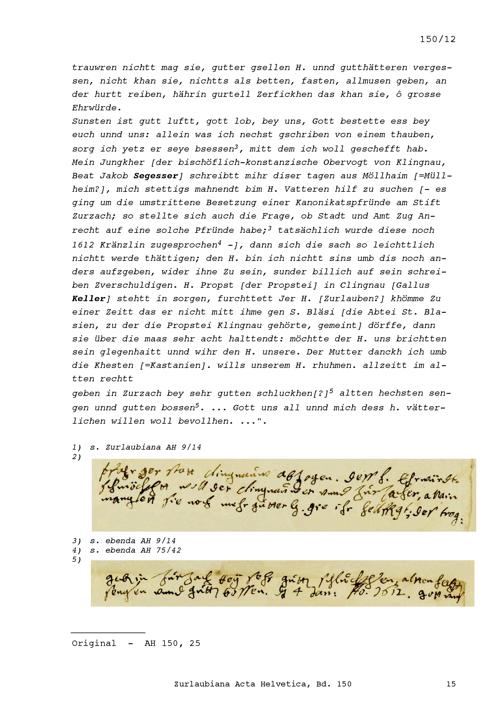 150/12
trauwren nichtt mag sie, gutter gsellen H. unnd gutthätteren verges-
sen, nicht khan sie, nichtts als betten, fasten, allmusen geben, an
der hurtt reiben, hährin gurtell Zerfickhen das khan sie, ô grosse
Ehrwürde.
Sunsten ist gutt luftt, gott lob, bey uns, Gott bestette ess bey
euch unnd uns: allein was ich nechst gschriben von einem thauben,
sorg ich yetz er seye bsessen³, mitt dem ich woll geschefft hab.
Mein Jungkher [der bischöflich-konstanzische Obervogt von Klingnau,
Beat Jakob Segesser] schreibtt mihr diser tagen aus Möllhaim [=Müll-
heim?], mich stettigs mahnendt bim H. Vatteren hilf zu suchen [- es
ging um die umstrittene Besetzung einer Kanonikatspfründe am Stift
Zurzach; so stellte sich auch die Frage, ob Stadt und Amt Zug An-
recht auf eine solche Pfründe habe;³ tatsächlich wurde diese noch
1612 Kränzlin zugesprochen⁴ -], dann sich die sach so leichttlich
nichtt werde thättigen; den H. bin ich nichtt sins umb dis noch an-
ders aufzgeben, wider ihne Zu sein, sunder billich auf sein schrei-
ben Zverschuldigen. H. Propst [der Propstei] in Clingnau [Gallus
Keller] stehtt in sorgen, furchttett Jer H. [Zurlauben?] khömme Zu
einer Zeitt das er nicht mitt ihme gen S. Bläsi [die Abtei St. Bla-
sien, zu der die Propstei Klingnau gehörte, gemeint] dörffe, dann
sie über die maas sehr acht halttendt: möchtte der H. uns brichtten
sein glegenhaitt unnd wihr den H. unsere. Der Mutter danckh ich umb
die Khesten [=Kastanien]. wills unserem H. rhuhmen. allzeitt im al-
tten rechtt
geben in Zurzach bey sehr gutten schluckhen[?]⁵ altten hechsten sen-
gen unnd gutten bossen⁵. ... Gott uns all unnd mich dess h. vätter-
lichen willen woll bevollhen. ...".
1) s. Zurlaubiana AH 9/14
2)
3) s. ebenda AH 9/14
4) s. ebenda AH 75/42
5)
Original - AH 150, 25
Zurlaubiana Acta Helvetica, Bd. 150 15